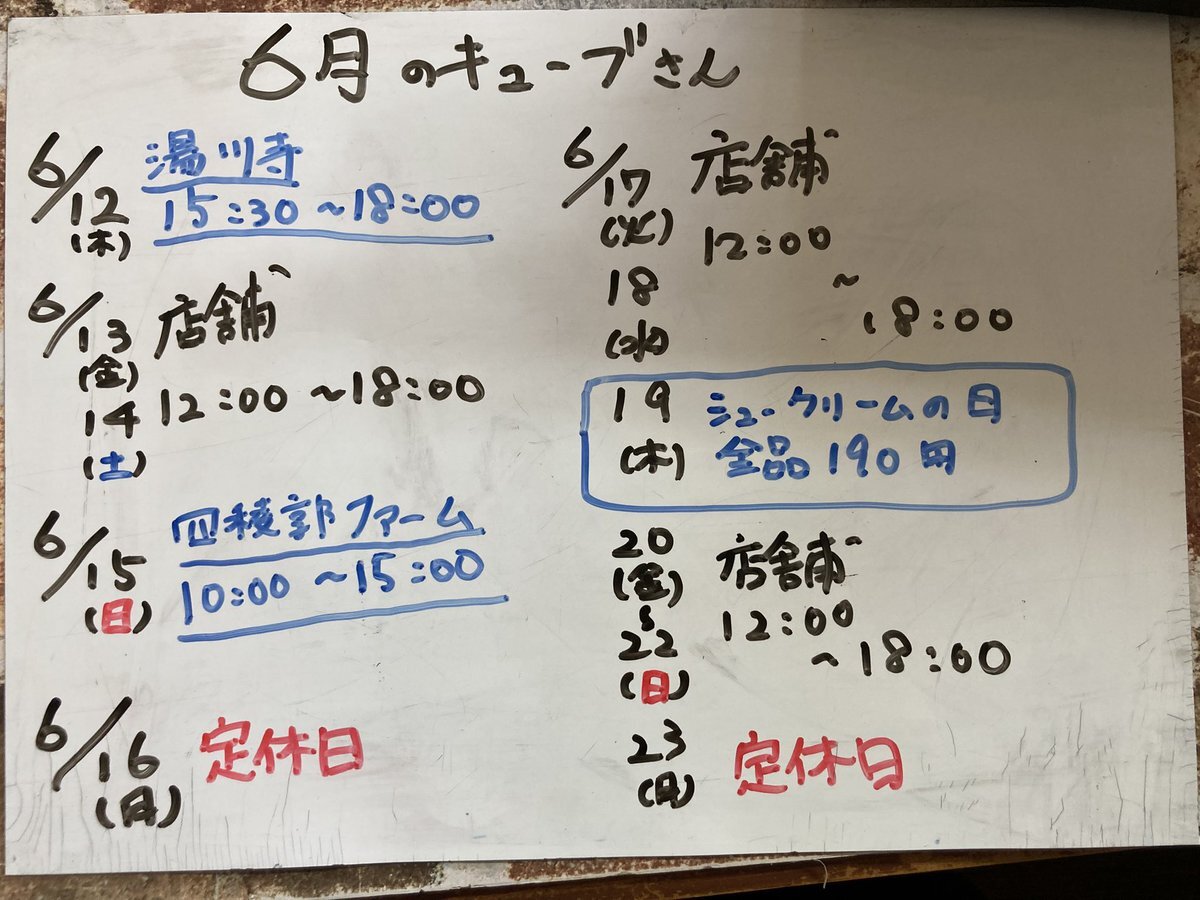 6月のキューブさん
6/12
(木)
湯川寺
15:30~18:00
6/13
(金)
14
(土)
店舗
12:00~18:00
6/15
(日)
四稜郭ファーム
10:00~15:00
6/16
(月)
定休日
6/17
(火)
18
(水)
店舗
12:00
~
18:00
19
(木)
シュークリームの日
全品190円
20
(金)
~
22
(日)
店舗
12:00
~18:00
23
(月)
定休日